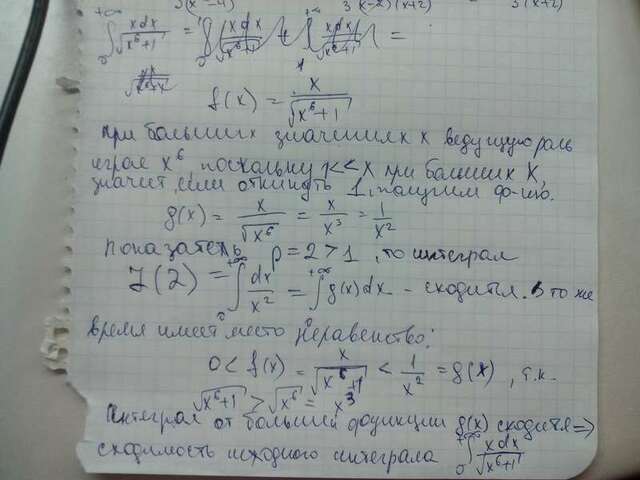 3(x²-4) 3(x-2)(x+2) 3(x+2)
∫₀^{+∞} xdx/√(x⁶+1) = ∫₀ xdx/√(x⁶+1) + ∫₁^{+∞} xdx/√(x⁶+1) =
f(x) = x/√(x⁶+1)
при больших значениях x ведущую роль
играе x⁶, поскольку 1<<x при больших x,
значит, если откинуть 1, получим ф-ию.
g(x) = x/√x⁶ = x/x³ = 1/x²
Показатель p=2>1, то интеграл
J(2) = ∫₀^{+∞} dx/x² = ∫₀^{+∞} g(x)dx – сходится. В то же
время имеет место неравенство:
0 < f(x) = x/√(x⁶+1) < 1/x² = g(x), т.к.
√(x⁶+1) > √x⁶ = x³
Интеграл от большей функции g(x) сходится ⇒
сходимость исходного интеграла ∫₀^{+∞} xdx/√(x⁶+1)